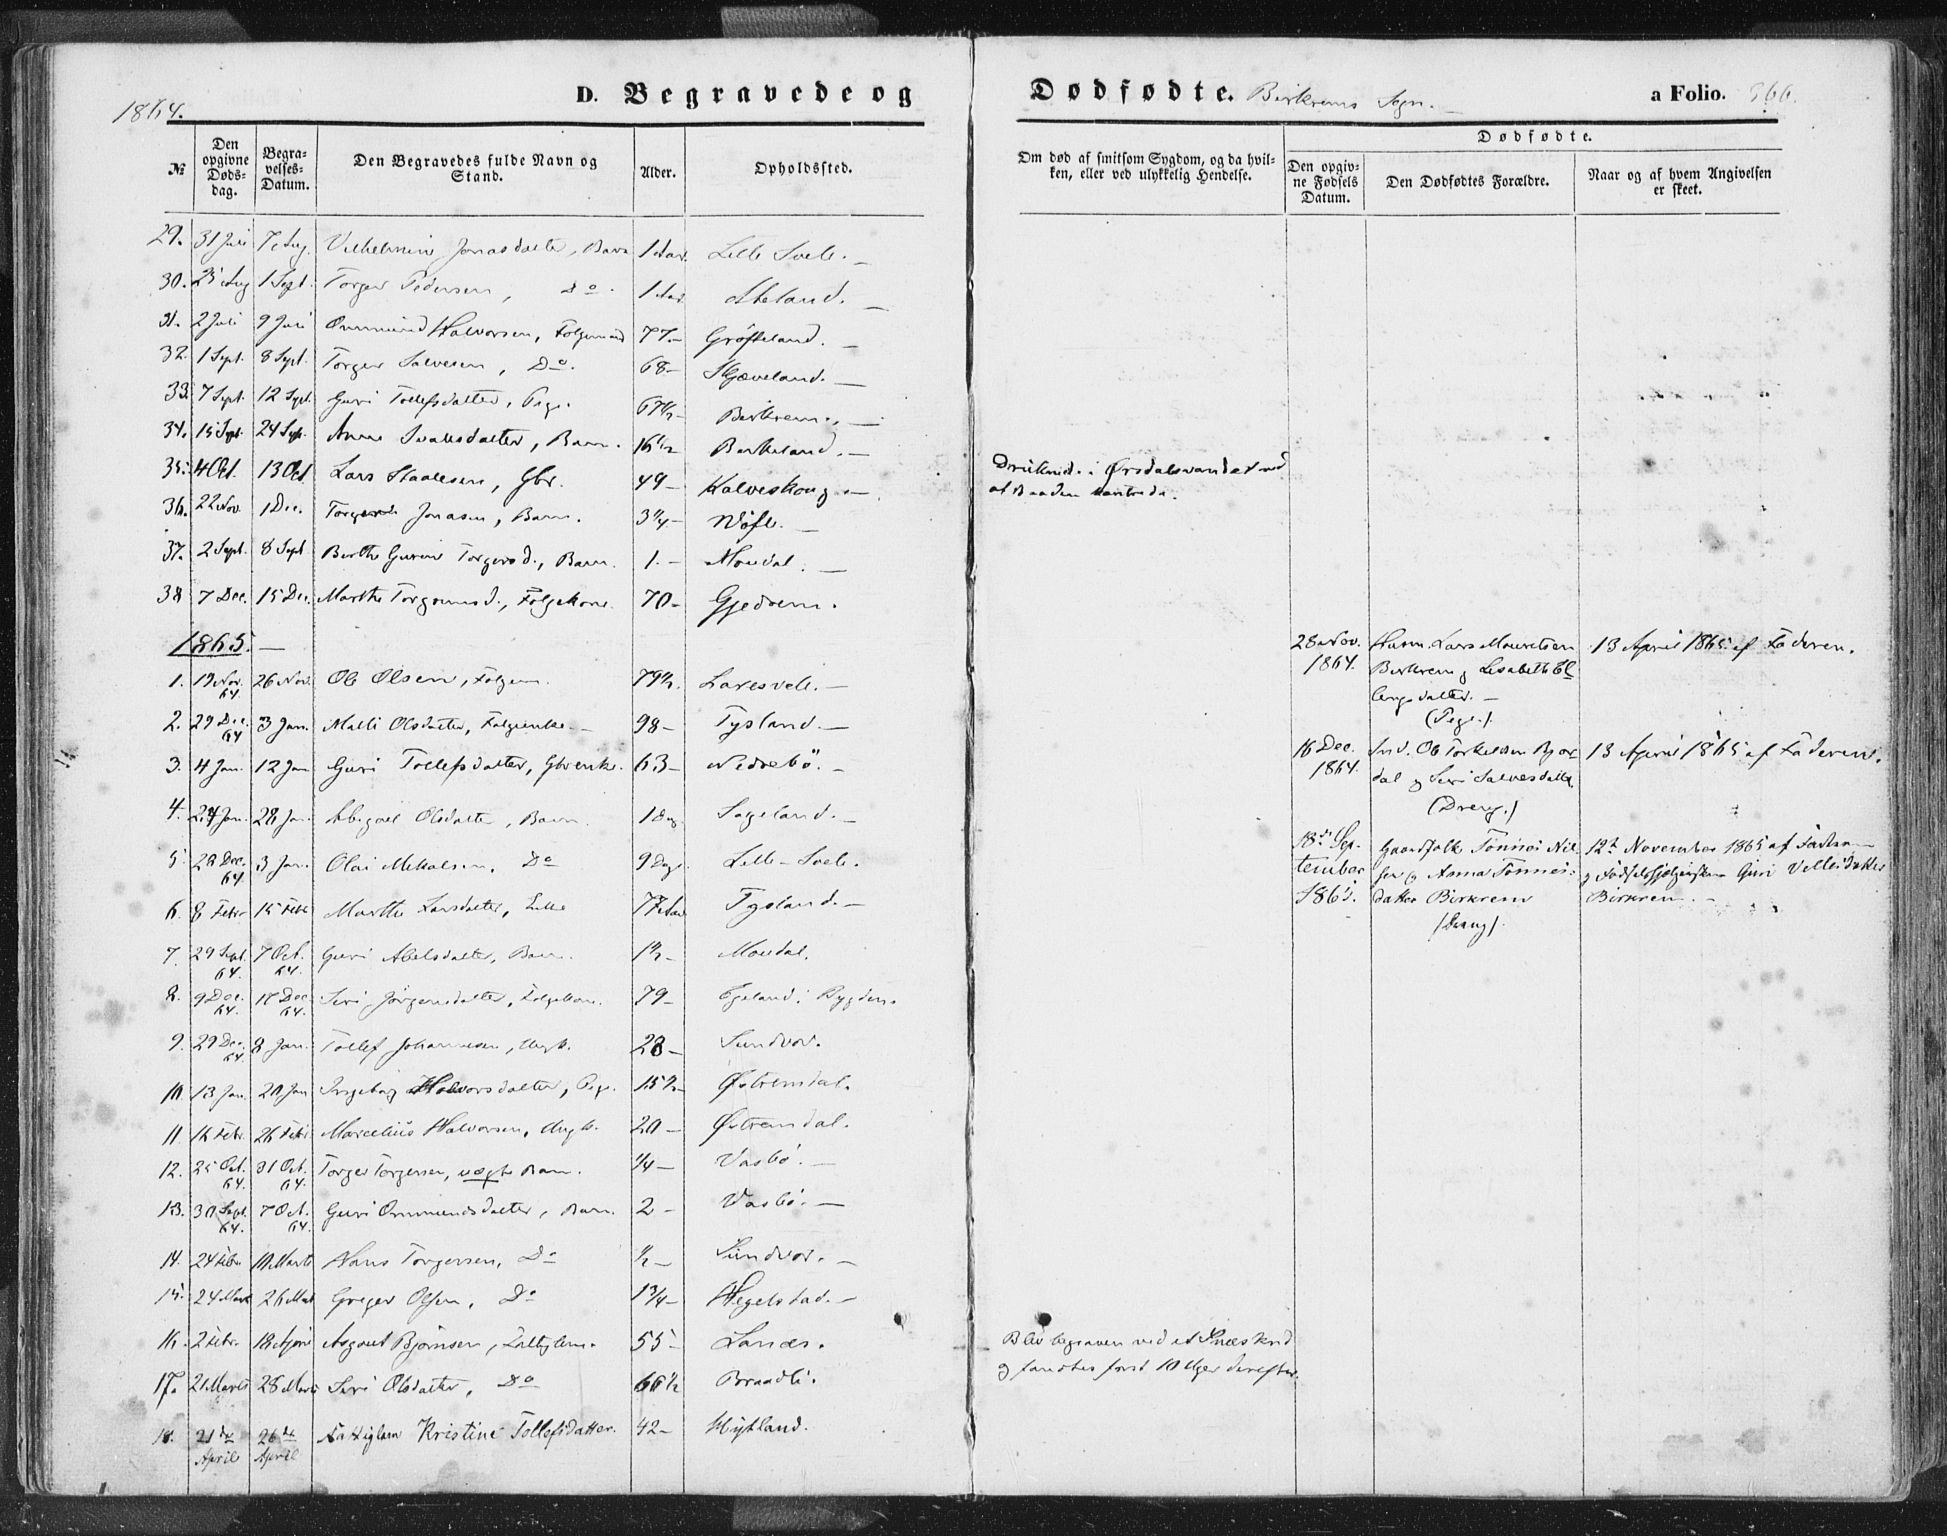 1864.
D. Begravede og Dødfødte. Birkrems Sogn. a Folio. 366.
№ | Den opgivne Døds-dag. | Begra-velses-Datum. | Den Begravedes fulde Navn og Stand. | Alder. | Opholdssted. | Om død af smitsom Sygdom, og da hvil-ken, eller ved ulykkelig Hendelse. | Dødfødte. Den opgiv-ne Fødsels Datum. | Den Dødfødtes Forældre. | Naar og af hvem Angivelsen er skeet.
29. 31 Juli 7 Aug. Vilhelmine Jonasdatter, Barn 1 Aar. Lille Svele.
30. 25 Aug 1 Sept. Torger Pedersen, Do. 1 Aar
31. 2 Juli 9 Juli Ommund Halvorsen, Folgemand 77. Grøsteland.
32. 1 Sept. 8 Sept. Torger Salvesen, Do. 68 Skjæveland.
33. 7 Sept. 12 Sept. Guri Tollefsdatter, Pige. 67½ Birkrem.
34. 15 Sept. 24 Sept. Anne Svalesdatter, Barn. 16½ Birkeland.
35. 4 Oct. 13 Oct Lars Staalesen, Gbr. 49 Kalveskoug Druknede i Ørsdalsvandet ved
at Baaden kantrede.
36. 22 Nov. 1 Dec. Jonasen, Barn. 3¼ Nöfle.
37. 2 Sept. 8 Sept Berthe Gurine Torgersd., Barn. 1. Moudal.
38 7 Dec. 15 Dec. Marthe Torgeirsd., Folgekone 70 Gjedrem.
1865.
1. 19 Nov. 64 26 Nov. Ole Olsen, Folgem. 79½ Laresvele.
2. 29 Dec. 64 3 Jan. Malli Olsdatter, Folgeenke. 98 Tysland.
3. 4 Jan. 12 Jan Guri Tollefsdatter, Gbrenke. 63 Nedrebö.
4. 24 Jan. 28 Jan. Abigael Olsdatter, Barn. 1 Dag Sageland.
5. 28 Dec. 64 3 Jan. Olai Mikalsen. Do 9 Dage Lille-Svele.
6. 8 Febr 15 Febr Marthe Larsdatter, Enke 77 Aar Tysland.
7. 29 Sept. 64. 7 Oct. 64. Guri Abelsdatter, Barn. 1½ Moudal.
8. 9 Dec. 64. 17 Dec. 64. Siri Jörgensdatter, Folgekone. 79 Egeland i Bygden.
9. 29 Dec. 64 8 Jan. Tollef Johannesen, Ungk. 28 Sundvor.
10. 13 Jan. 20 Jan Ingeborg Halvorsdatter, Pige. 15½ Østremdal.
11. 16 Febr. 26 Febr Marcelius Halvorsen, Ungk. 20 Østremdal.
12. 25 Oct. 64. 31 Oct. 64. Torger Torgersen, uægte Barn. ¼ Vasbö.
13. 30 Sept. 64. 7 Oct. 64. Guri Ommundsdatter, Barn. 2 Vasbö.
14. 24 Febr 10 Marts Hans Torgersen, Do ½ Sundvor.
15. 24 Mart 26 Mart Greger Olsen, Do 1¾ Hegelstad.
16. 2 Febr. 18 April Asgout Bjørnsen, Fattiglem. 55 Lanæs. Blev begraven ved et Sneeskred
og fandtes først 10 Uger derefter.
17. 21 Marts 28 Marts Siri Olsdatter, Do 66½ Braadli.
18. 21de April 26de April Fattiglem Kristine Tollefsdatter. 42 Hytland.
28 Nov. 1864. Husm. Lars Mauritsen
Birkrem og Lisabeth El
lingsdatter.
(Pige.) 13 April 1865 af Faderen.
16 Dec. 1864. Ind. Ole Torkelsen Bjor
dal og Siri Salvesdatter
(Dreng.) 13 April 1865 af Faderen.
18de Sep-
tember
1865. Gaardfolk Tönnes Nil
sen og Anna Tönnes-
datter Birkrem
(Dreng). 12te November 1865 af Faderen
og Fødselshjelpersken Guri Vellesdatter
Birkrem.